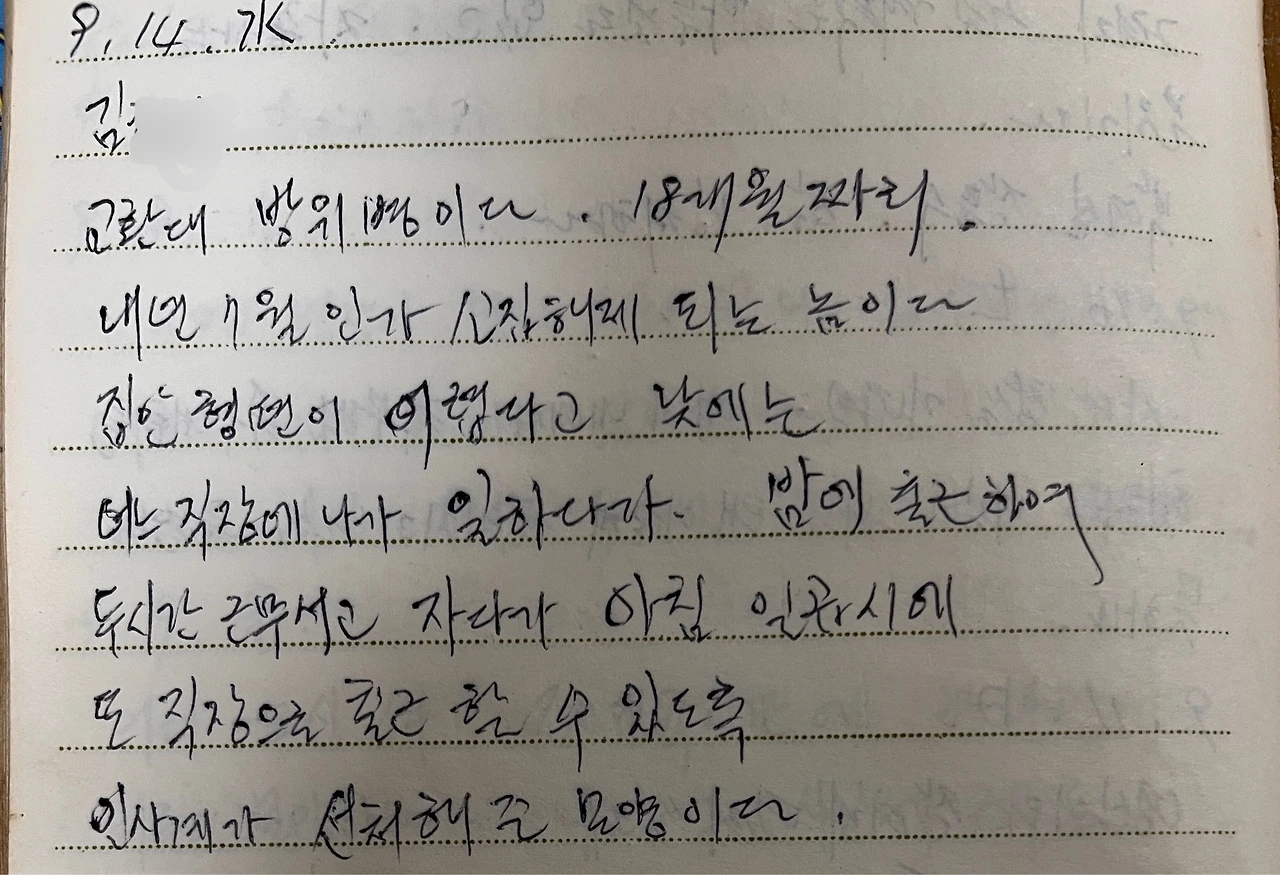 9.14.水
김
군악대 방위병이다. 18개월짜리.
내년 7월 인가 소집해제 되는 놈이다
집안 형편이 어렵다고 낮에는
어느 직장에 나가 일하다가. 밤에 출근하여
두시간 근무서고 자다가 아침 일과시에
또 직장으로 출근 할 수 있도록
인사계가 선처해 준 모양이다.